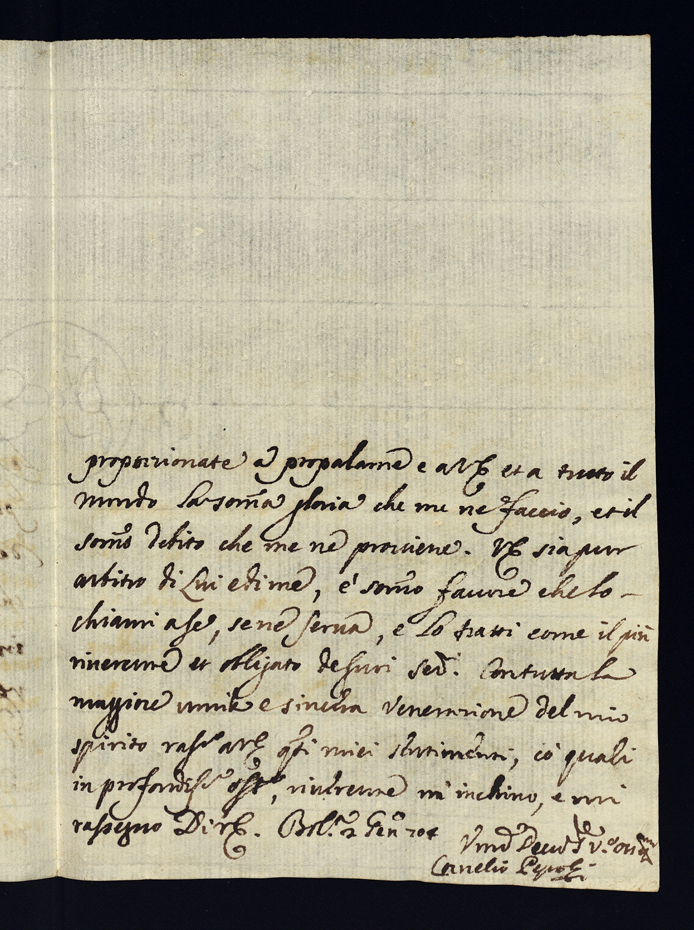 proporzionate à propalarne e a V.E. et a tutto il
mondo la som̃a gloria che me ne faccio, et il
som̃o debito che me ne proviene. V.E. sia pur
arbitro di Lui e di me, e som̃o favore che lo
chiami a se, se ne serva, e lo tratti come il più
riverente et obligato de suoi Ser.i. Con tutta la
maggiore umile e sincera venerazione del mio
spirito a V.E. q̃ti miei sentimenti, co' quali
in profondis.o riverente m'inchino, e mi
rassegno Di V.E. Bol.a 2 Gen.o 704
Um̃o
Cornelio Pepoli